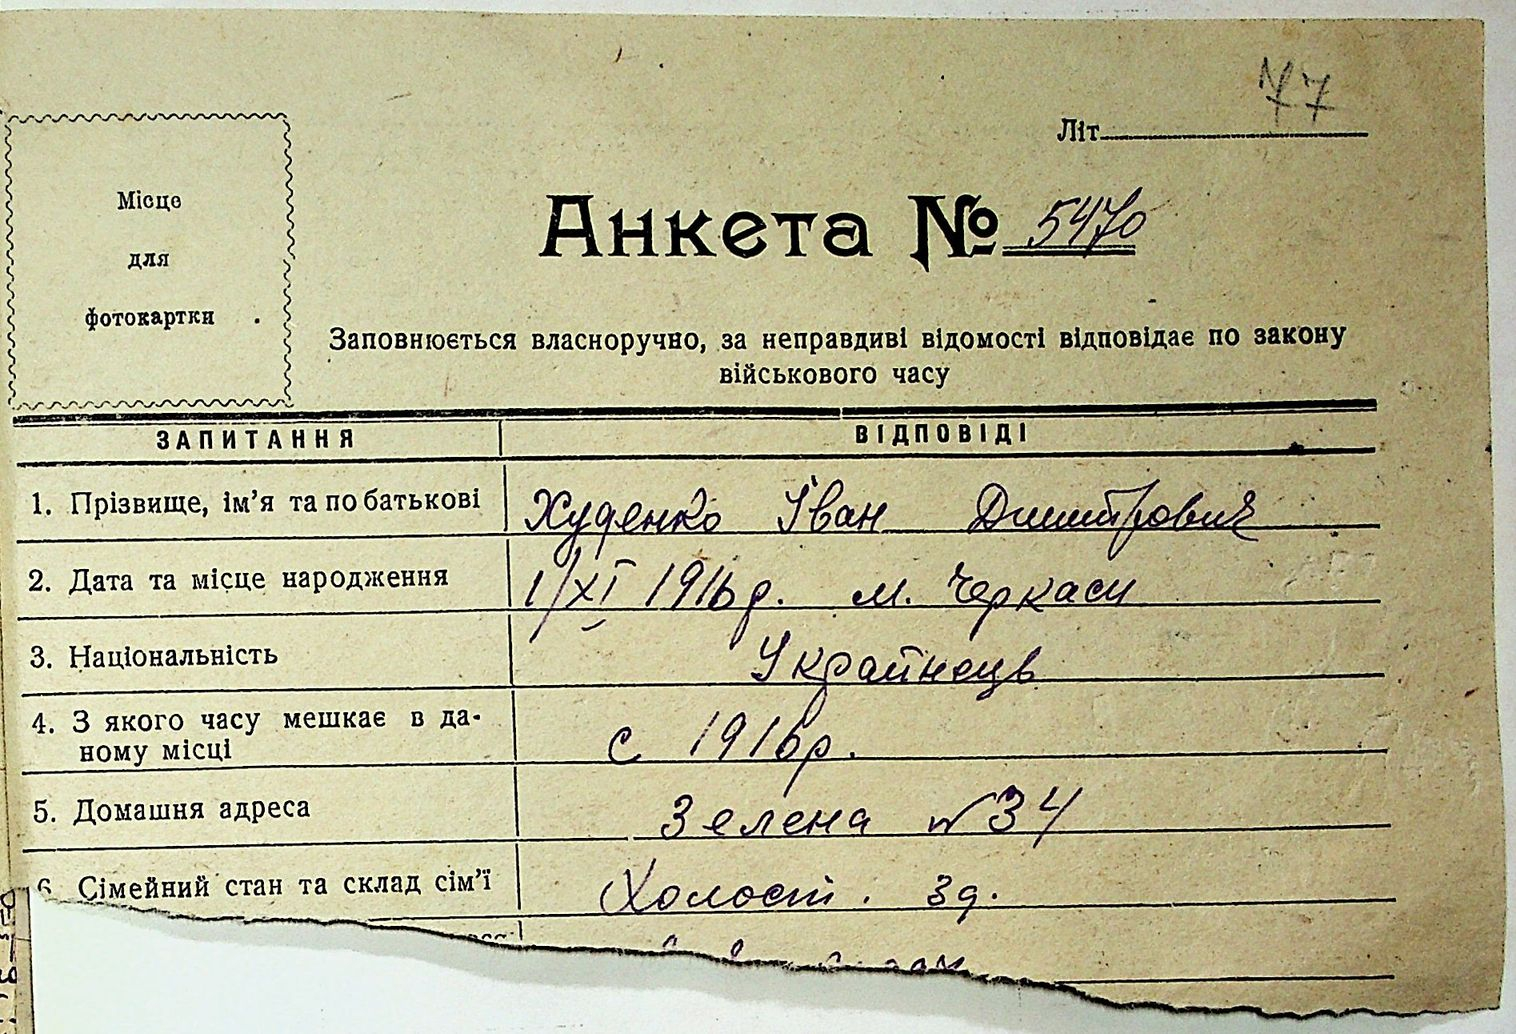 77
Літ
Місце
для
фотокартки
Анкета № 5470
Заповнюється власноручно, за неправдиві відомості відповідає по закону
військового часу
ЗАПИТАННЯ ВІДПОВІДІ
1. Прізвище, ім'я та по батькові Худенко Іван Димитрович
2. Дата та місце народження 1/XI 1916р. м. Черкаси
3. Національність Українець
4. З якого часу мешкає в да-
ному місці с 1916р.
5. Домашня адреса Зелена № 34
6. Сімейний стан та склад сім'ї Холост. 3д.